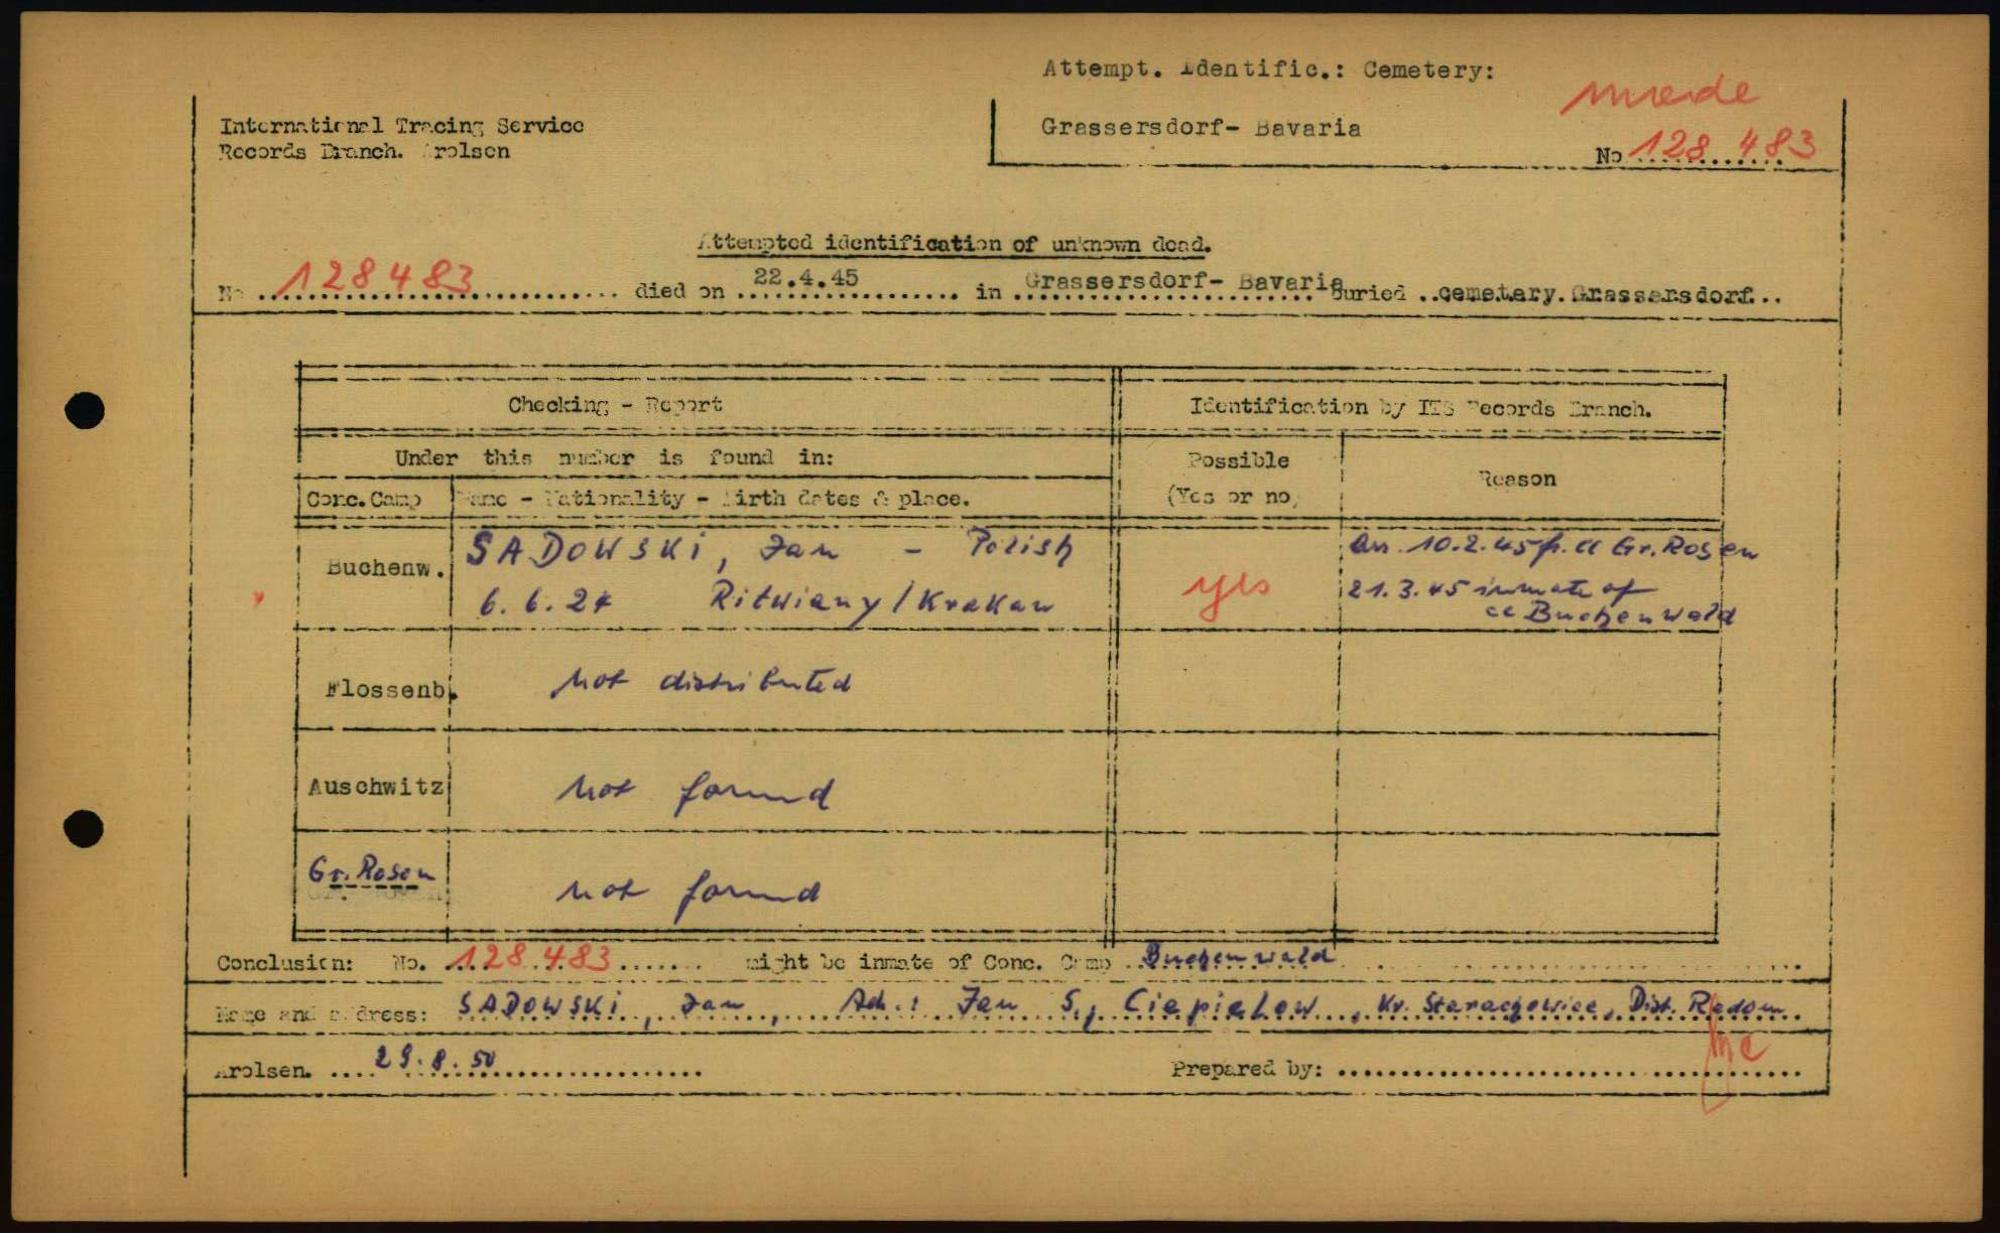 Attempt. Identific.: Cemetery:
Grassersdorf- Bavaria
No 128 483
International Tracing Service
Records Branch. Arolsen
Attempted identification of unknown dead.
No 128483 died on 22.4.45 in Grassersdorf- Bavaria Buried cemetery Grassersdorf
Checking - Report
Identification by ITS Records Branch.
Under this number is found in:
Possible
(Yes or no)
Reason
Conc. Camp
Name - Nationality - Birth dates & place.
Buchenw.
SADOWSKI, Jan - Polish
6.6.24 Ritwiany/Krakau
yes
10.2.45 fr. cc Gr. Rosen
21.3.45 inmate of
cc Buchenwald
Flossenb.
not distributed
Auschwitz
not found
Gr. Rosen
not found
Conclusion: No. 128 483 might be inmate of Conc. Camp Buchenwald
Name and address: SADOWSKI, Jan, Ad.: Jan S., Ciepielow, Kr. Starachowice, Dist. Radom
Arolsen. 29.8.50
Prepared by: